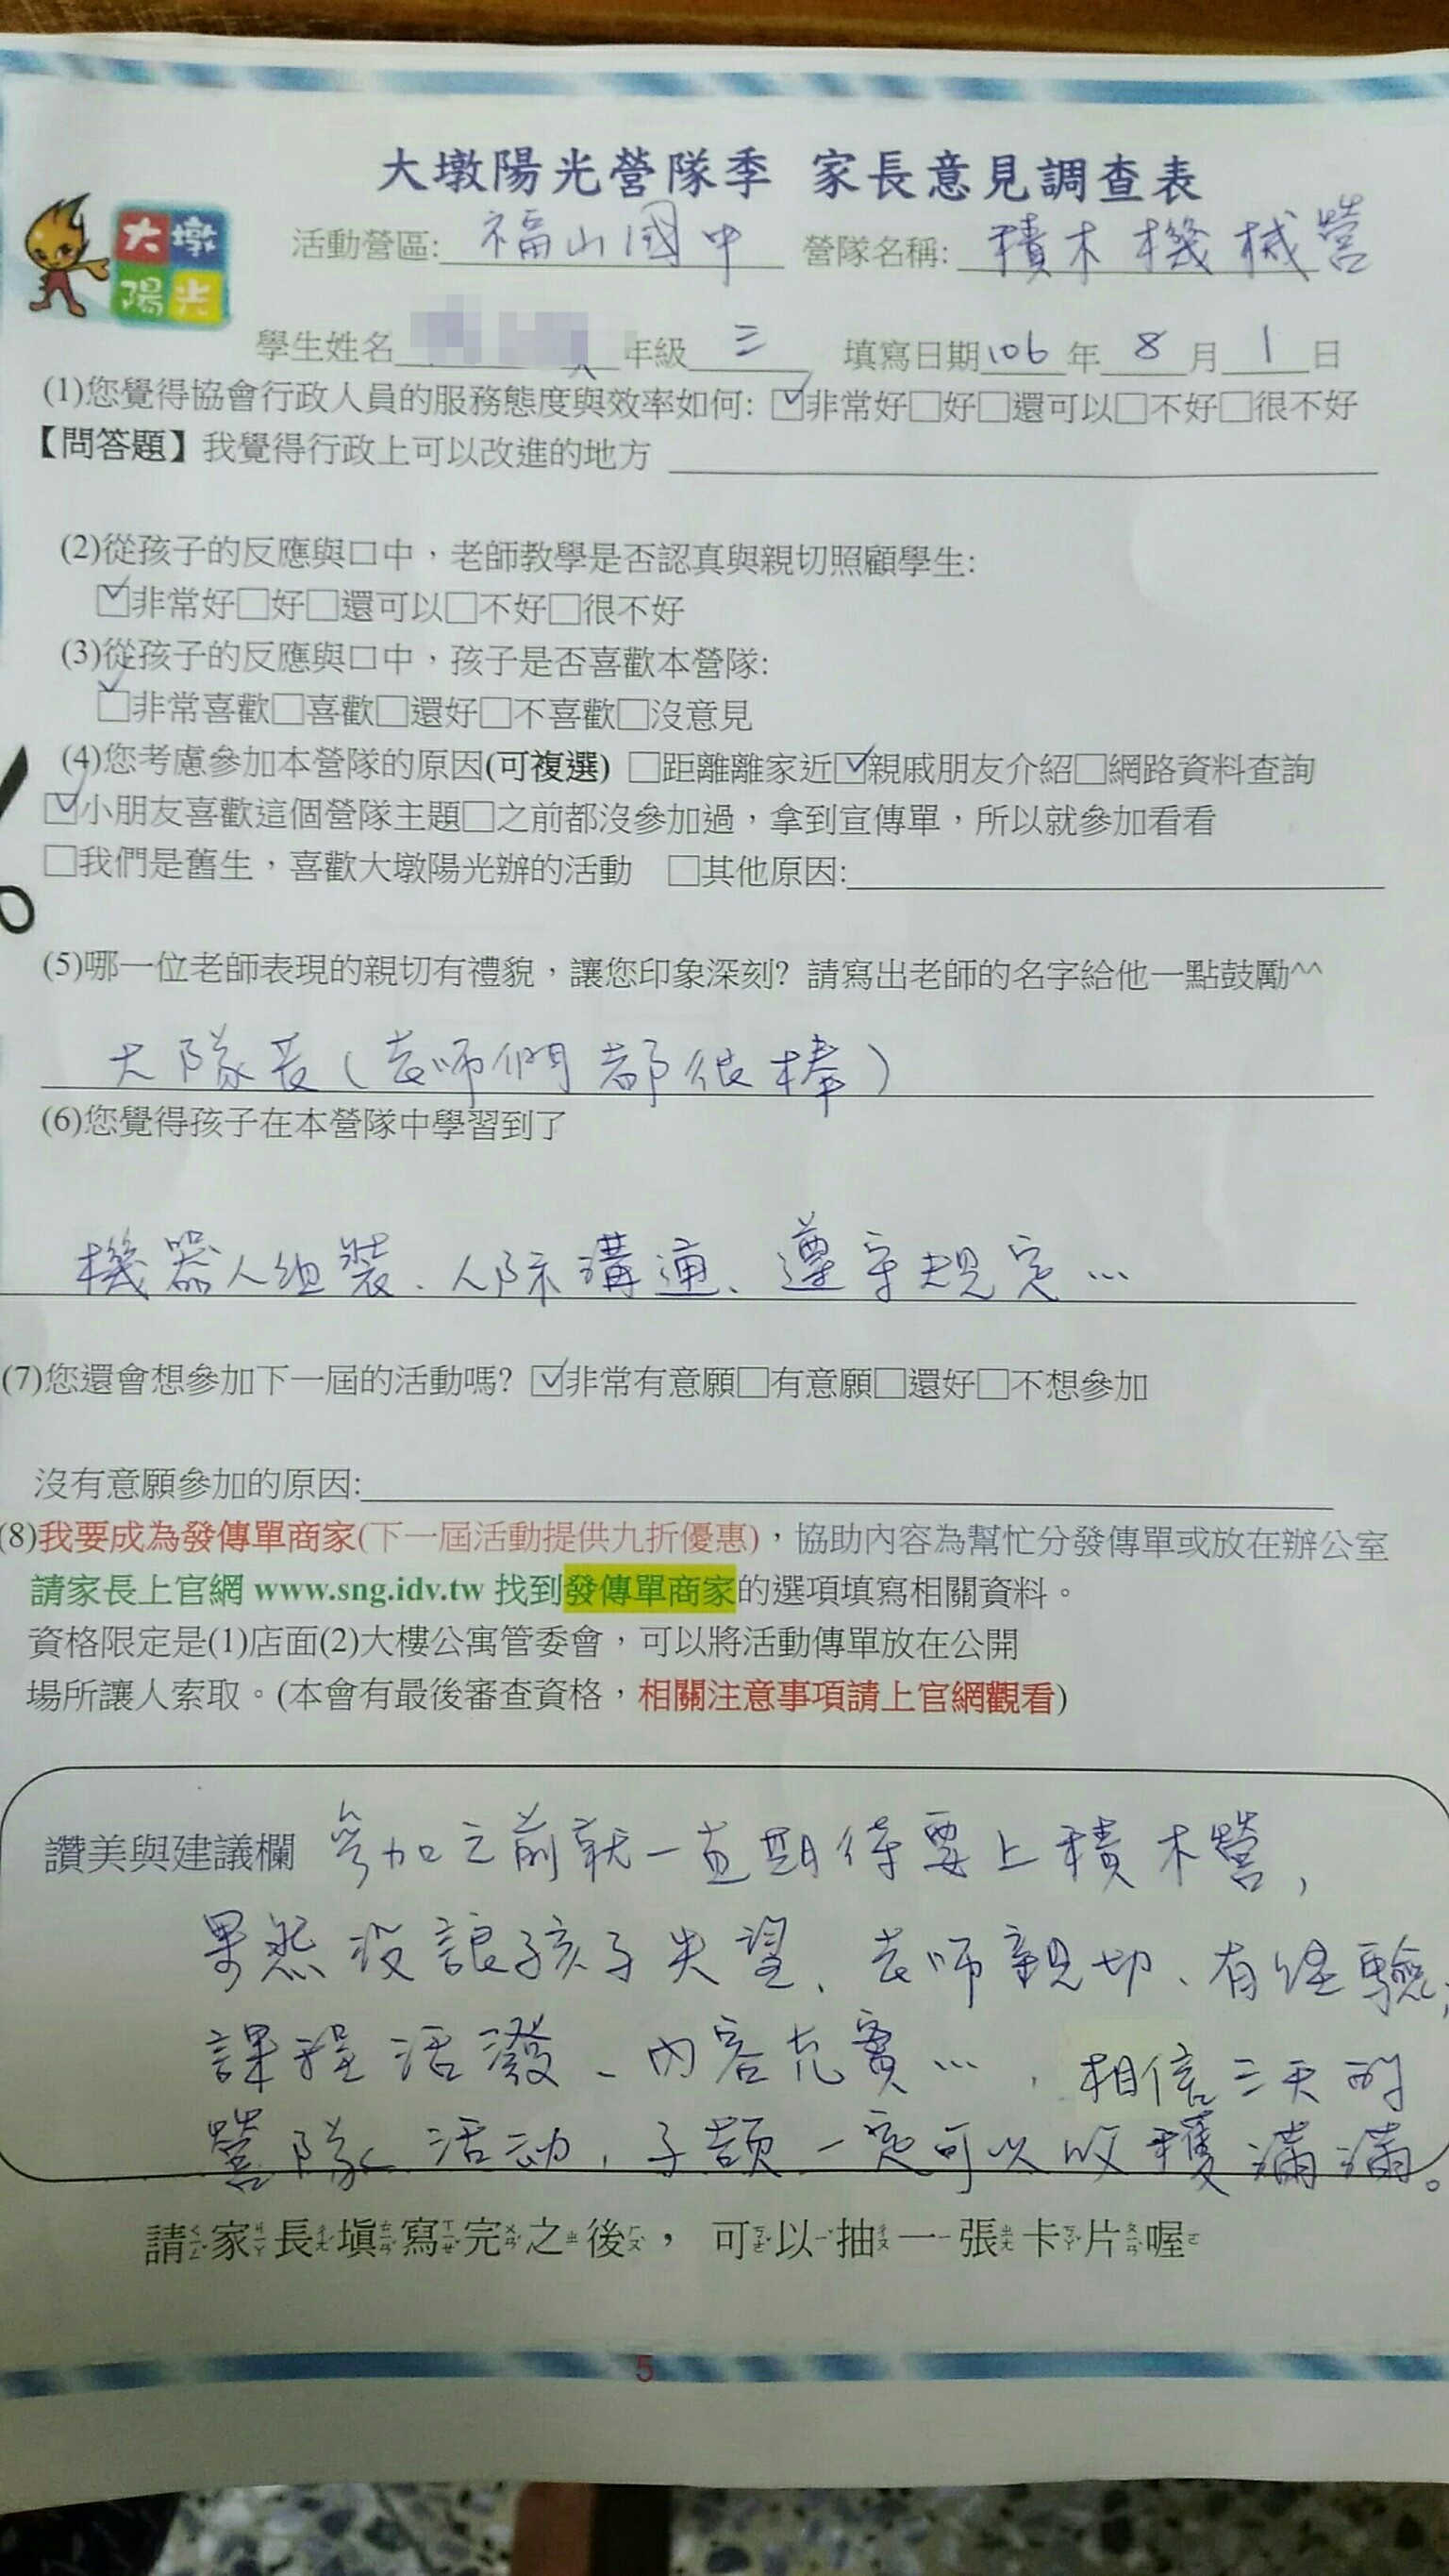 大墩陽光營隊季 家長意見調查表
大墩
陽光
活動營區: 福山國中 營隊名稱: 積木機械營
學生姓名 年級 三 填寫日期 106 年 8 月 1 日
(1)您覺得協會行政人員的服務態度與效率如何: ☑非常好□好□還可以□不好□很不好
【問答題】我覺得行政上可以改進的地方
(2)從孩子的反應與口中，老師教學是否認真與親切照顧學生:
☑非常好□好□還可以□不好□很不好
(3)從孩子的反應與口中，孩子是否喜歡本營隊:
☑非常喜歡□喜歡□還好□不喜歡□沒意見
(4)您考慮參加本營隊的原因(可複選) □距離離家近☑親戚朋友介紹□網路資料查詢
☑小朋友喜歡這個營隊主題□之前都沒參加過，拿到宣傳單，所以就參加看看
□我們是舊生，喜歡大墩陽光辦的活動 □其他原因:
(5)哪一位老師表現的親切有禮貌，讓您印象深刻? 請寫出老師的名字給他一點鼓勵^^
大隊長(老師們都很棒)
(6)您覺得孩子在本營隊中學習到了
機器人組裝、人際溝通、遵守規定…
(7)您還會想參加下一屆的活動嗎? ☑非常有意願□有意願□還好□不想參加
沒有意願參加的原因:
(8)我要成為發傳單商家(下一屆活動提供九折優惠)，協助內容為幫忙分發傳單或放在辦公室
請家長上官網 www.sng.idv.tw 找到發傳單商家的選項填寫相關資料。
資格限定是(1)店面(2)大樓公寓管委會，可以將活動傳單放在公開
場所讓人索取。(本會有最後審查資格，相關注意事項請上官網觀看)
讚美與建議欄 參加之前就一直期待要上積木營，
果然沒讓孩子失望、老師親切、有經驗，
課程活潑、內容充實…，相信三天的
營隊活动，子頡一定可以收穫滿滿。
請家長填寫完之後，可以抽一張卡片喔
5